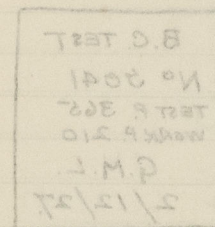 B.C. TEST
Nº 5041
TEST P. 365
WORK P. 210
G.M.L.
2/12/27